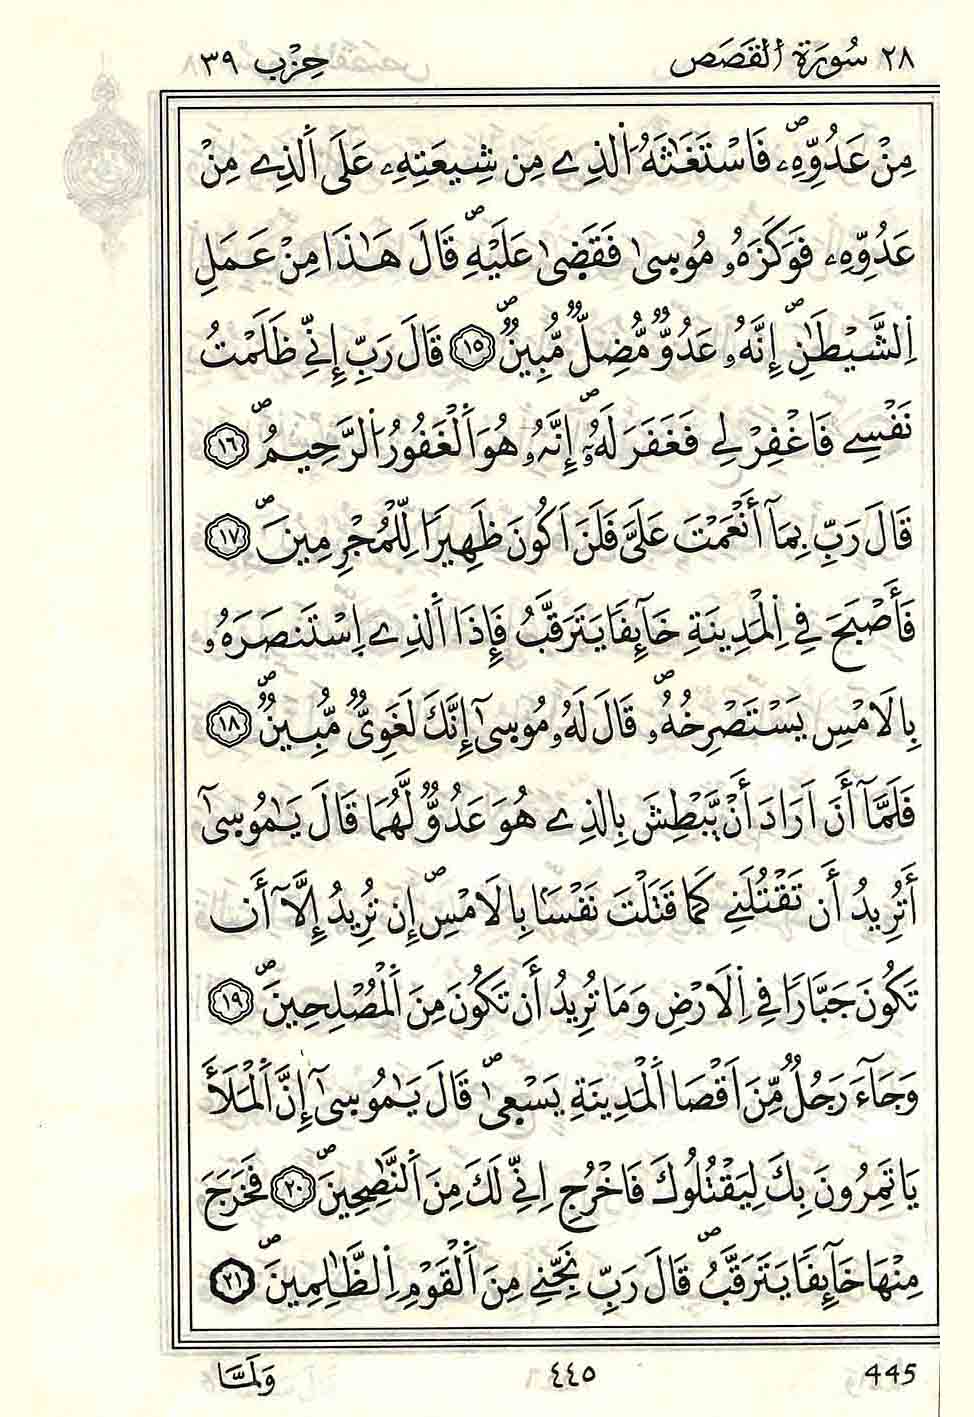 ٢٨ سُورَةُ اَ۬لْقَصَصِ حِزْب ٣٩
مِنْ عَدُوِّهِۦۖ فَاسْتَغَٰثَهُ اُ۬لذِے مِن شِيعَتِهِۦ عَلَى اَ۬لذِے مِنْ
عَدُوِّهِۦ فَوَكَزَهُۥ مُوس۪ىٰ فَقَض۪ىٰ عَلَيْهِۖ قَالَ هَٰذَا مِنْ عَمَلِ
اِ۬لشَّيْطَٰنِۖ إِنَّهُۥ عَدُوّٞ مُّضِلّٞ مُّبِينٞۖ ١٥ قَالَ رَبِّ إِنِّے ظَلَمْتُ
نَفْسِے فَاغْفِرْ لِے فَغَفَرَ لَهُۥٓۖ إِنَّهُۥ هُوَ اَ۬لْغَفُورُ اُ۬لرَّحِيمُۖ ١٦
قَالَ رَبِّ بِمَآ أَنْعَمْتَ عَلَيَّ فَلَنَ اَكُونَ ظَهِيراٗ لِّلْمُجْرِمِينَۖ ١٧
فَأَصْبَحَ فِے اِ۬لْمَدِينَةِ خَآئِفاٗ يَتَرَقَّبُ فَإِذَا اَ۬لذِے اِ۪سْتَنصَرَهُۥ
بِالَامْسِ يَسْتَصْرِخُهُۥۖ قَالَ لَهُۥ مُوس۪ىٰٓ إِنَّكَ لَغَوِيّٞ مُّبِينٞۖ ١٨
فَلَمَّآ أَنَ اَرَادَ أَنْ يَّبْطِشَ بِالذِے هُوَ عَدُوّٞ لَّهُمَا قَالَ يَٰمُوس۪ىٰٓ
أَتُرِيدُ أَن تَقْتُلَنِے كَمَا قَتَلْتَ نَفْساَۢ بِالَامْسِۖ إِن تُرِيدُ إِلَّآ أَن
تَكُونَ جَبَّاراٗ فِے اِ۬لَارْضِ وَمَا تُرِيدُ أَن تَكُونَ مِنَ اَ۬لْمُصْلِحِينَۖ ١٩
وَجَآءَ رَجُلٞ مِّنَ اَقْصَا اَ۬لْمَدِينَةِ يَسْع۪ىٰۖ قَالَ يَٰمُوس۪ىٰٓ إِنَّ اَ۬لْمَلَأَ
يَاتَمِرُونَ بِكَ لِيَقْتُلُوكَ فَاخْرُجِ اِنِّے لَكَ مِنَ اَ۬لنَّٰصِحِينَۖ ٢٠ فَخَرَجَ
مِنْهَا خَآئِفاٗ يَتَرَقَّبُۖ قَالَ رَبِّ نَجِّنِے مِنَ اَ۬لْقَوْمِ اِ۬لظَّٰلِمِينَۖ ٢١
445 ٤٤٥ وَلَمَّا